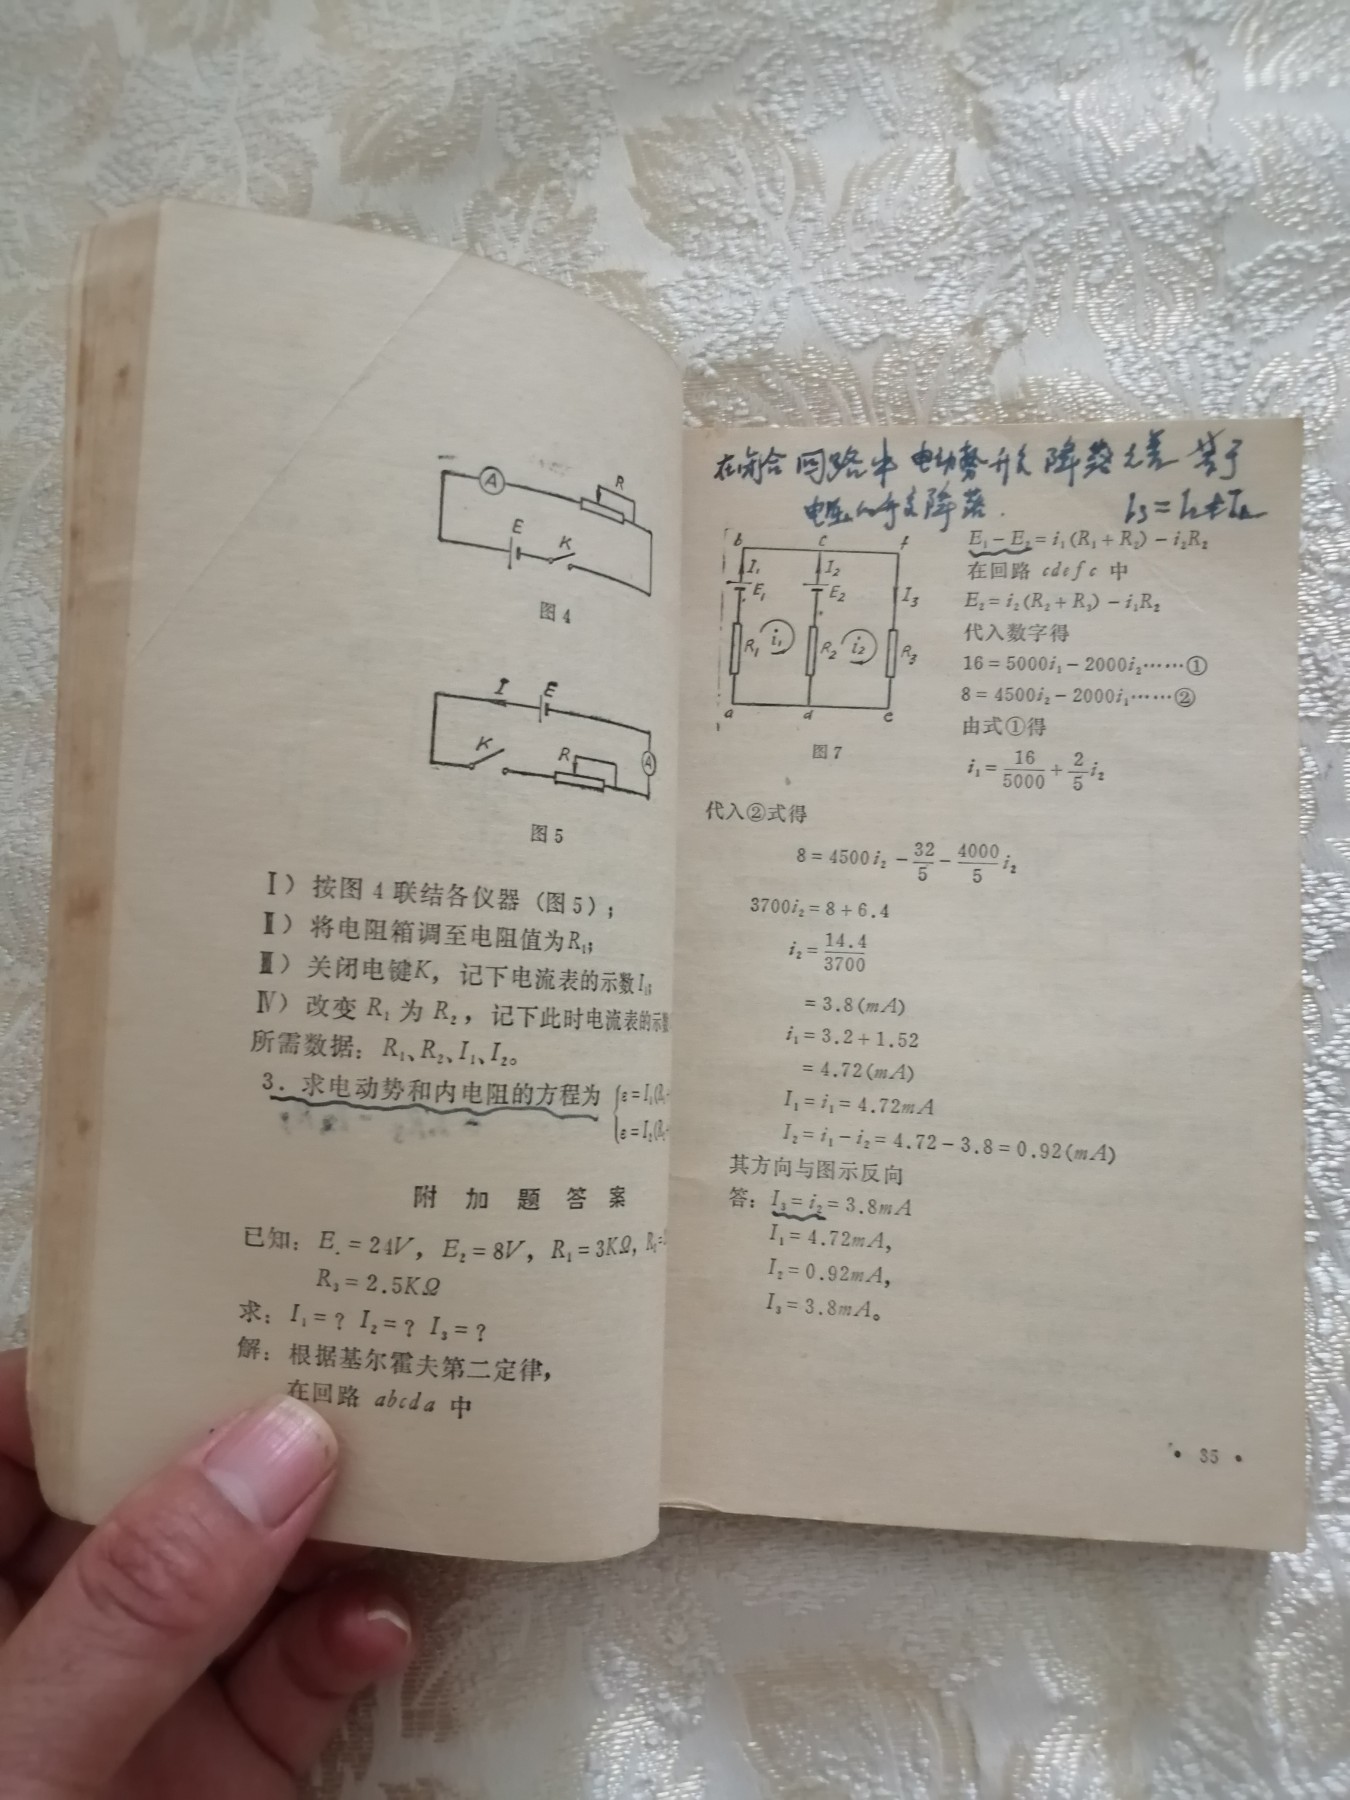 A
R
E
K
图4
I
E
K
R
A
图5
Ⅰ）按图4联结各仪器（图5）；
Ⅱ）将电阻箱调至电阻值为R₁；
Ⅲ）关闭电键K，记下电流表的示数I₁；
Ⅳ）改变R₁为R₂，记下此时电流表的示数
所需数据：R₁、R₂、I₁、I₂。
3．求电动势和内电阻的方程为 ε=I₁(R₁
ε=I₂(R₂
附加题答案
已知：E. =24V，E₂=8V，R₁=3KΩ，
R₃=2.5KΩ
求：I₁=? I₂=? I₃=?
解：根据基尔霍夫第二定律，
在回路 abcda 中
在闭合回路中电动势升降落之差等于
电压的升降落．
I₃=
b c f
I₁ I₂ I₃
E₁ E₂
R₁ i₁ R₂ i₂ R₃
a d e
图7
E₁－E₂=i₁(R₁+R₂)－i₂R₂
在回路 cdefc 中
E₂=i₂(R₂+R₃)－i₁R₂
代入数字得
16=5000i₁－2000i₂……①
8=4500i₂－2000i₁……②
由式①得
i₁=16/5000+2/5i₂
代入②式得
8=4500i₂－32/5－4000/5i₂
3700i₂=8+6.4
i₂=14.4/3700
=3.8(mA)
i₁=3.2+1.52
=4.72(mA)
I₁=i₁=4.72mA
I₂=i₁－i₂=4.72－3.8=0.92(mA)
其方向与图示反向
答：I₃=i₂=3.8mA
I₁=4.72mA，
I₂=0.92mA，
I₃=3.8mA。
• 35 •